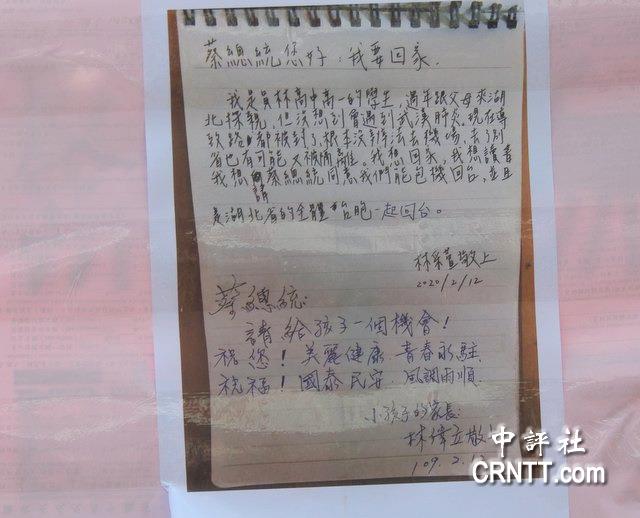 蔡總統您好：我要回家.
我是員林高中高一的學生，過年跟父母來湖
北探親，但沒想到會遇到武漢肺炎，現在專
鐵路都被封了，根本沒辦法去機場，去了別
省也有可能又被隔離。我想回家，我想讀書
我想請蔡總統同意我們能包機回台，並且
是湖北省的全體台胞一起回台。
林采萱敬上
2020/2/12
蔡總統:
請給孩子一個機會！
祝您！美麗健康 青春永駐.
祝福！國泰民安 風調雨順.
小孩子的家長:
林偉立敬
109.2.12
中評社
CRNTT.com